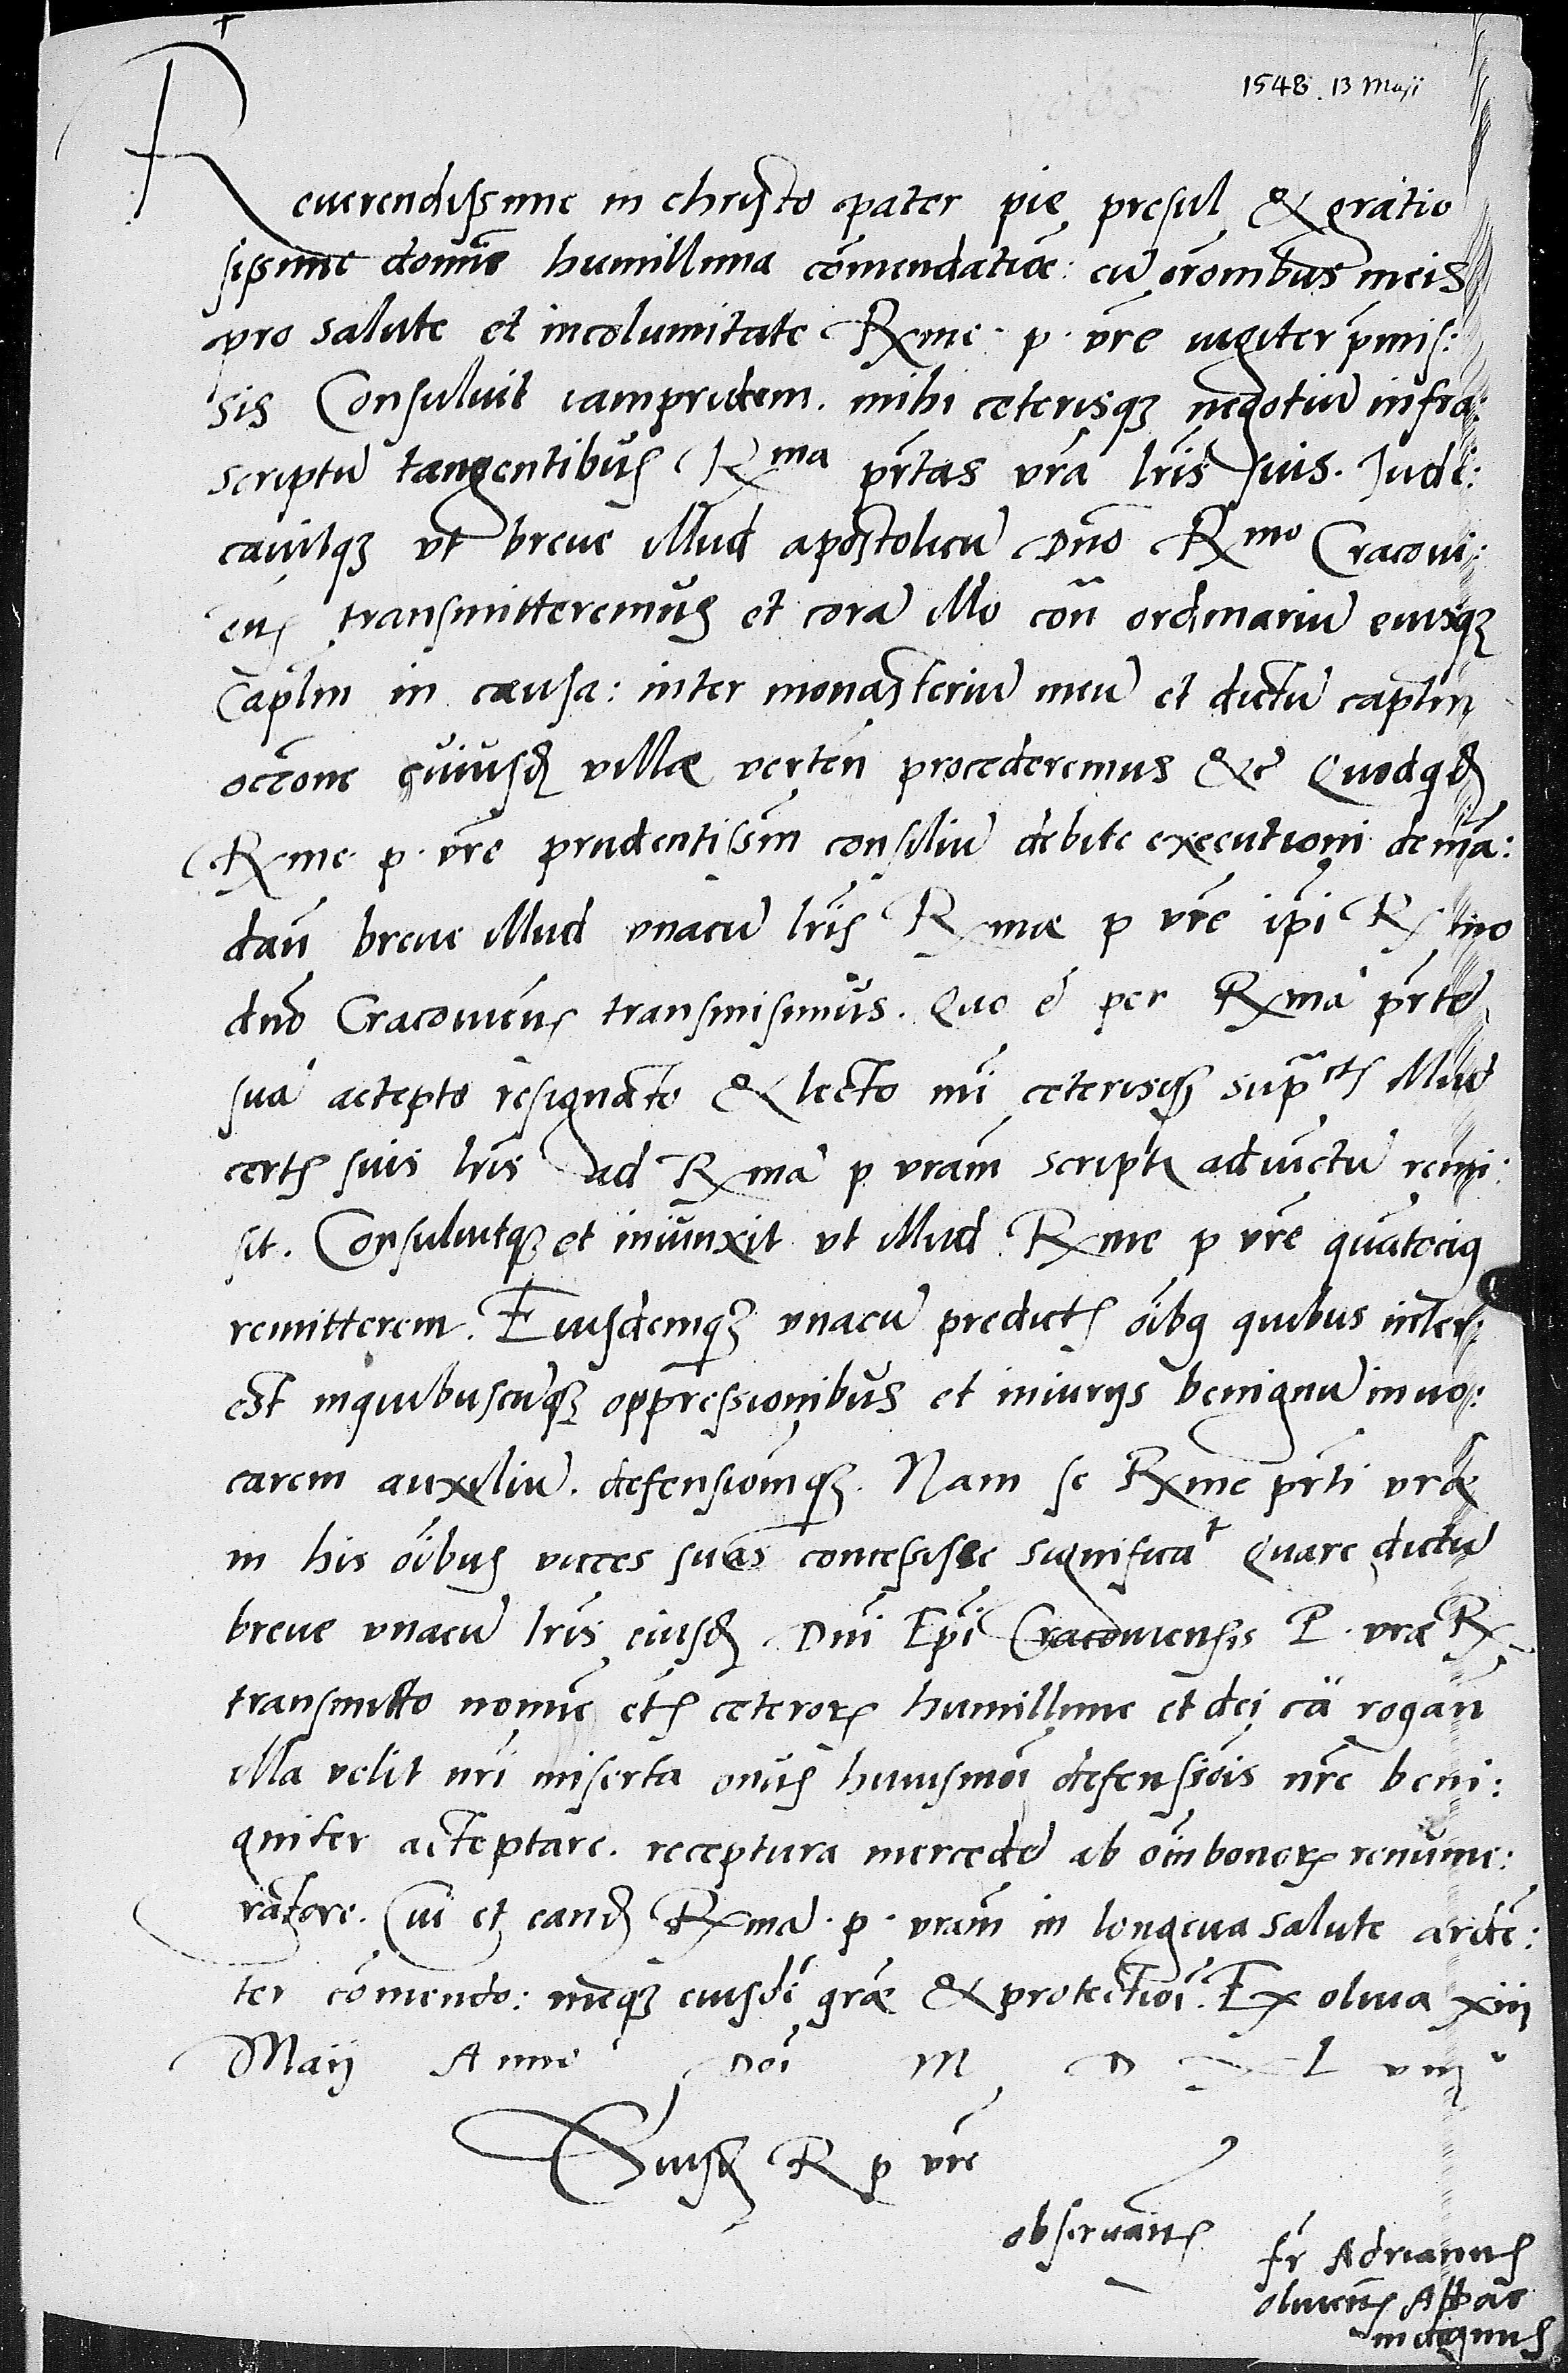 +
1548. 13 Maji
Reuerendissime in christo pater pie presul & gratio
sissime domine humillima comendatioe: cu oronibus meis
pro salute et incolumitate Rxme p. vre iugiter pmis:
sis Consuluit iampridem. mihi ceterisqz negotiu infra:
scriptu tangentibus Rma prtas vra lris suis. Judi:
cauitqz vt breue illud apostolicu Dno Rxmo Cracoui:
ens transmitteremus et cora illo con ordinariu eiusqz
Caplm in causa: inter monasteriu meu et dictu captm
occone cuiusd villae verten procederemus &c Quodquid
Rxme p. vre prudentissm consiliu debite executioni dema:
dan breue illud vnacu lris Rxmae p vre ipi Rxmo
dno Cracouiens transmisimus. Quo e per Rxma prte
sua accepto resignato & lecto mi ceterisqz suprctis illud
certis suis lris ad Rxma p vram scriptis adiunctu remi:
sit. Consuluitqz et iniunxit vt illud Rxme p vre quatocius
remitterem. Eiusdemqz vnacu predictis oibus quibus inter:
est inquibuscuqz oppressionibus et iniurijs benignu inuo:
carem auxiliu. defensionqz. Nam se Rxme prti vrae
in his oibus vicces suas concessisse significat Quare dictu
breue vnacu lris eiusd Dni Epi Cracouiensis P. vrae Rx
transmitto nomine etis ceteror humillime et dei ca rogan
illa velit nri miserta onus huiusmoi defensiois nre beni:
gniter acceptare. receptura mercede ab oim bonor remune:
ratore. Cui et eand Rxma p. vram in longeua salute arde:
ter comendo: meqz eiusde grae & protectioi. Ex oliua xiij
Maij Anno Doi M D XL viij
Eiusd R p vre
obseruantis
fr Adrianus
oliuens Abbas
indignus